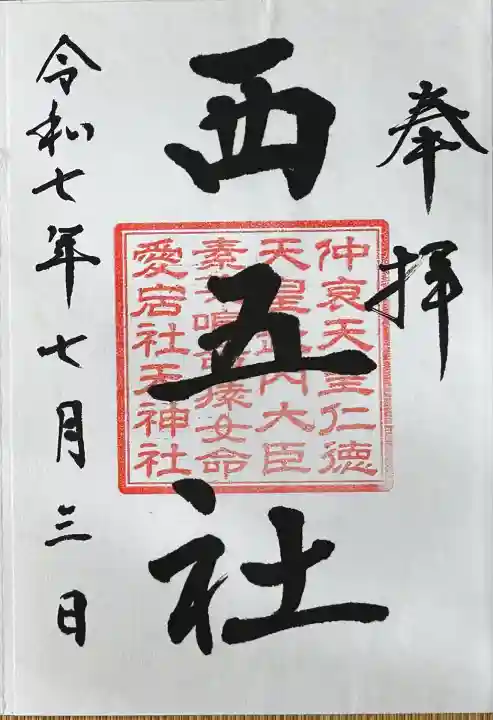 奉拝
西五社
仲哀天皇仁徳
天皇武内大臣
素嗚猿女命
愛宕社神社
令和七年七月三日